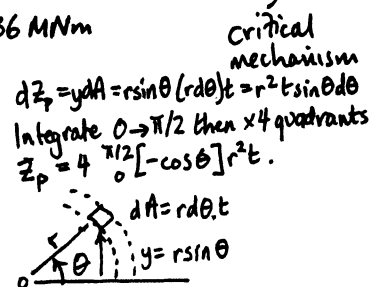 36 MNm
critical
mechanism
dZp = ydA = rsinθ(rdθ)t = r²tsinθdθ
Integrate 0→π/2 then ×4 quadrants
Zp = 4 π/2 0 [-cosθ]r²t.
dA = rdθ.t
r
θ
y = rsinθ
0